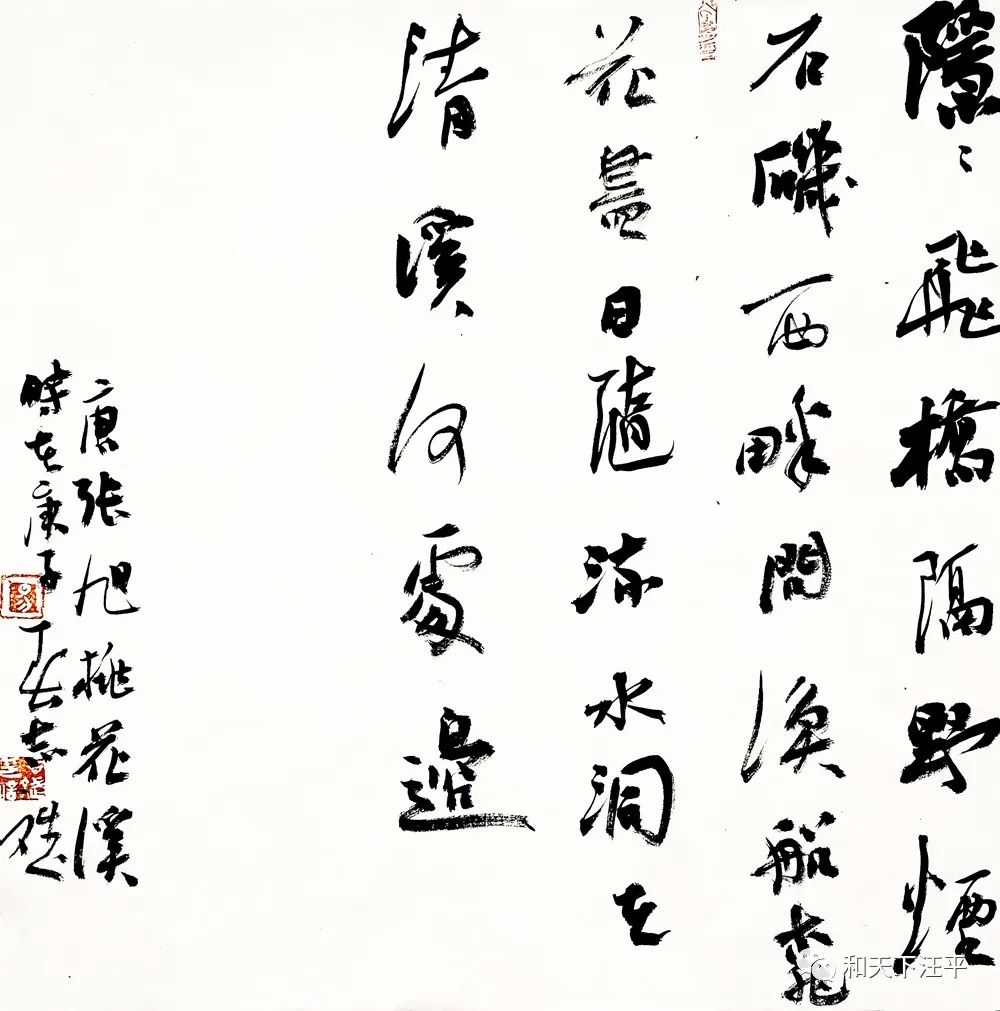 隱〻飛橋隔野煙
石磯西畔問漁船桃
花盡日隨流水洞在
清溪何處邊
唐張旭桃花溪
時在庚子丁志
和天下汪平